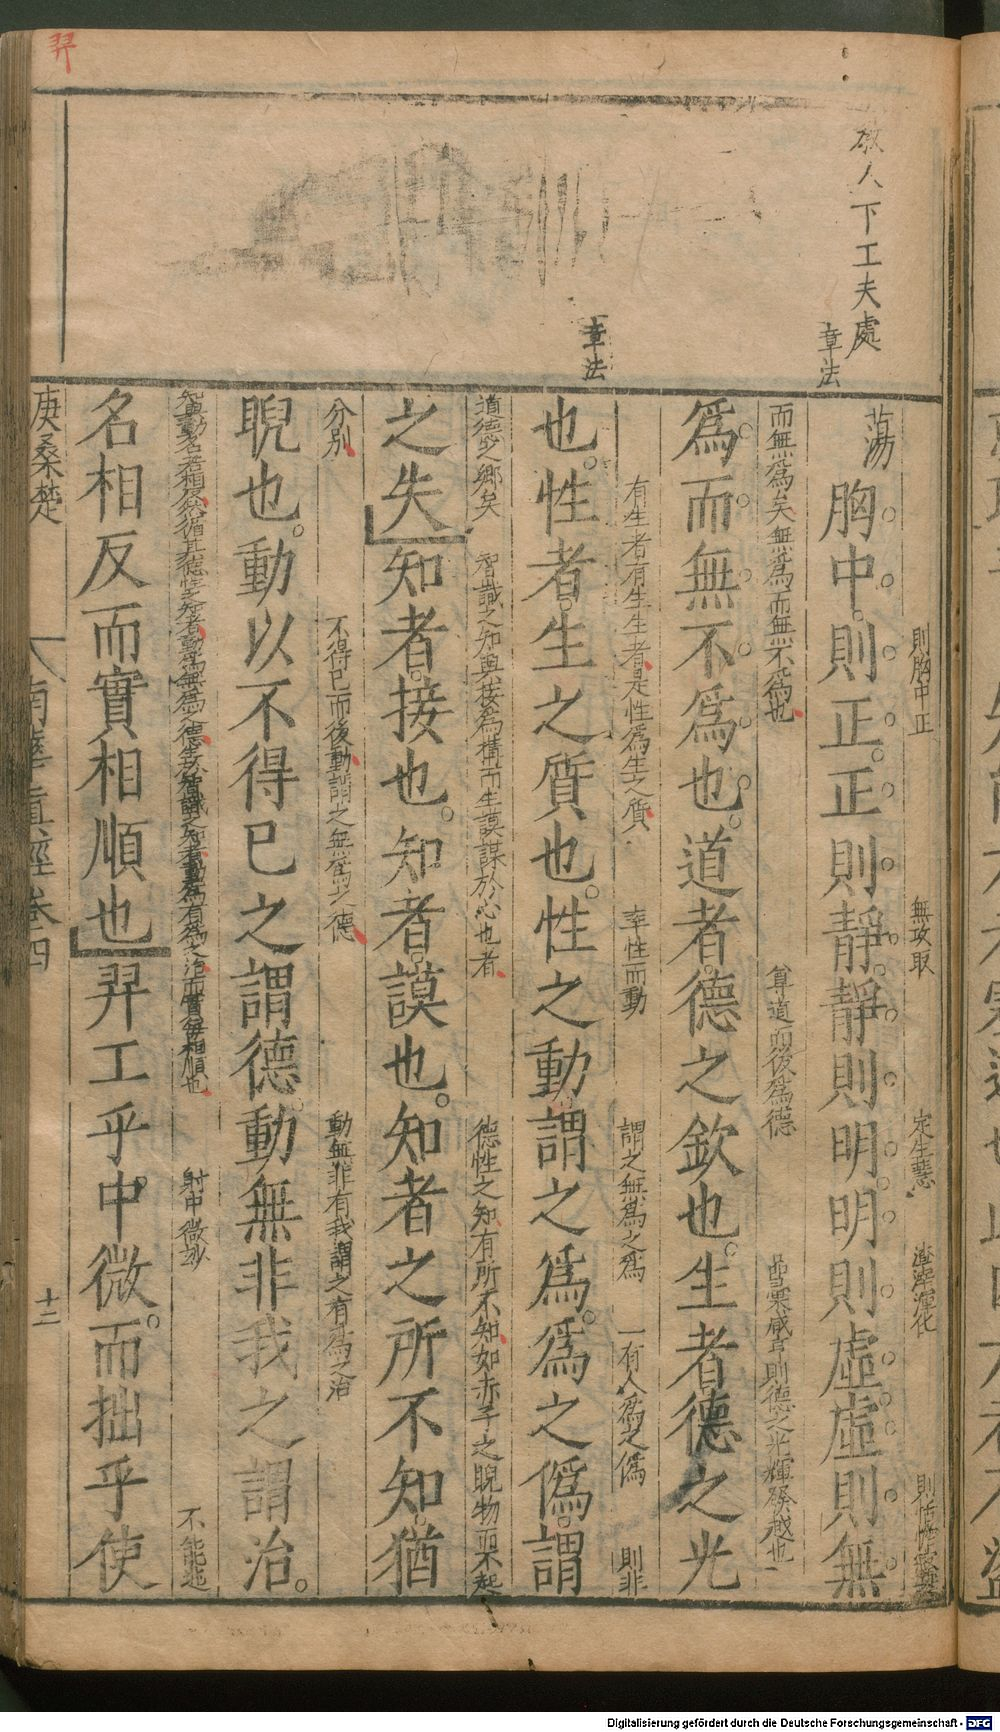 羿
教人下工夫處
章法
章法
則胸中正 無攻取 定生慧 渣滓渾化
蕩胸中則正正則靜靜則明明則虛虛則無
而無爲矣無爲而無不爲也 尊道而後爲德 則德之光輝發越也
爲而無不爲也道者德之欽也生者德之光
有生者有生生者是性爲生之質 率性而動 謂之無爲之爲 一有人爲之僞 則非
也性者生之質也性之動謂之爲爲之僞謂
道德之鄉矣 智識之知與接爲構而生謨謀於心也者 德性之知有所不知如赤子之睨物而不起
之失知者接也知者謨也知者之所不知猶
分別 不得已而後動謂之無爲之德 動無非有我謂之有爲之治
睨也動以不得已之謂德動無非我之謂治
動名若相反然循其德性之知者動爲無爲之德生於智識之知者動爲有爲之治而實每相順也 射中微妙 不能
名相反而實相順也羿工乎中微而拙乎使
庚桑楚 南華眞經卷四 十二
Digitalisierung gefördert durch die Deutsche Forschungsgemeinschaft - DFG